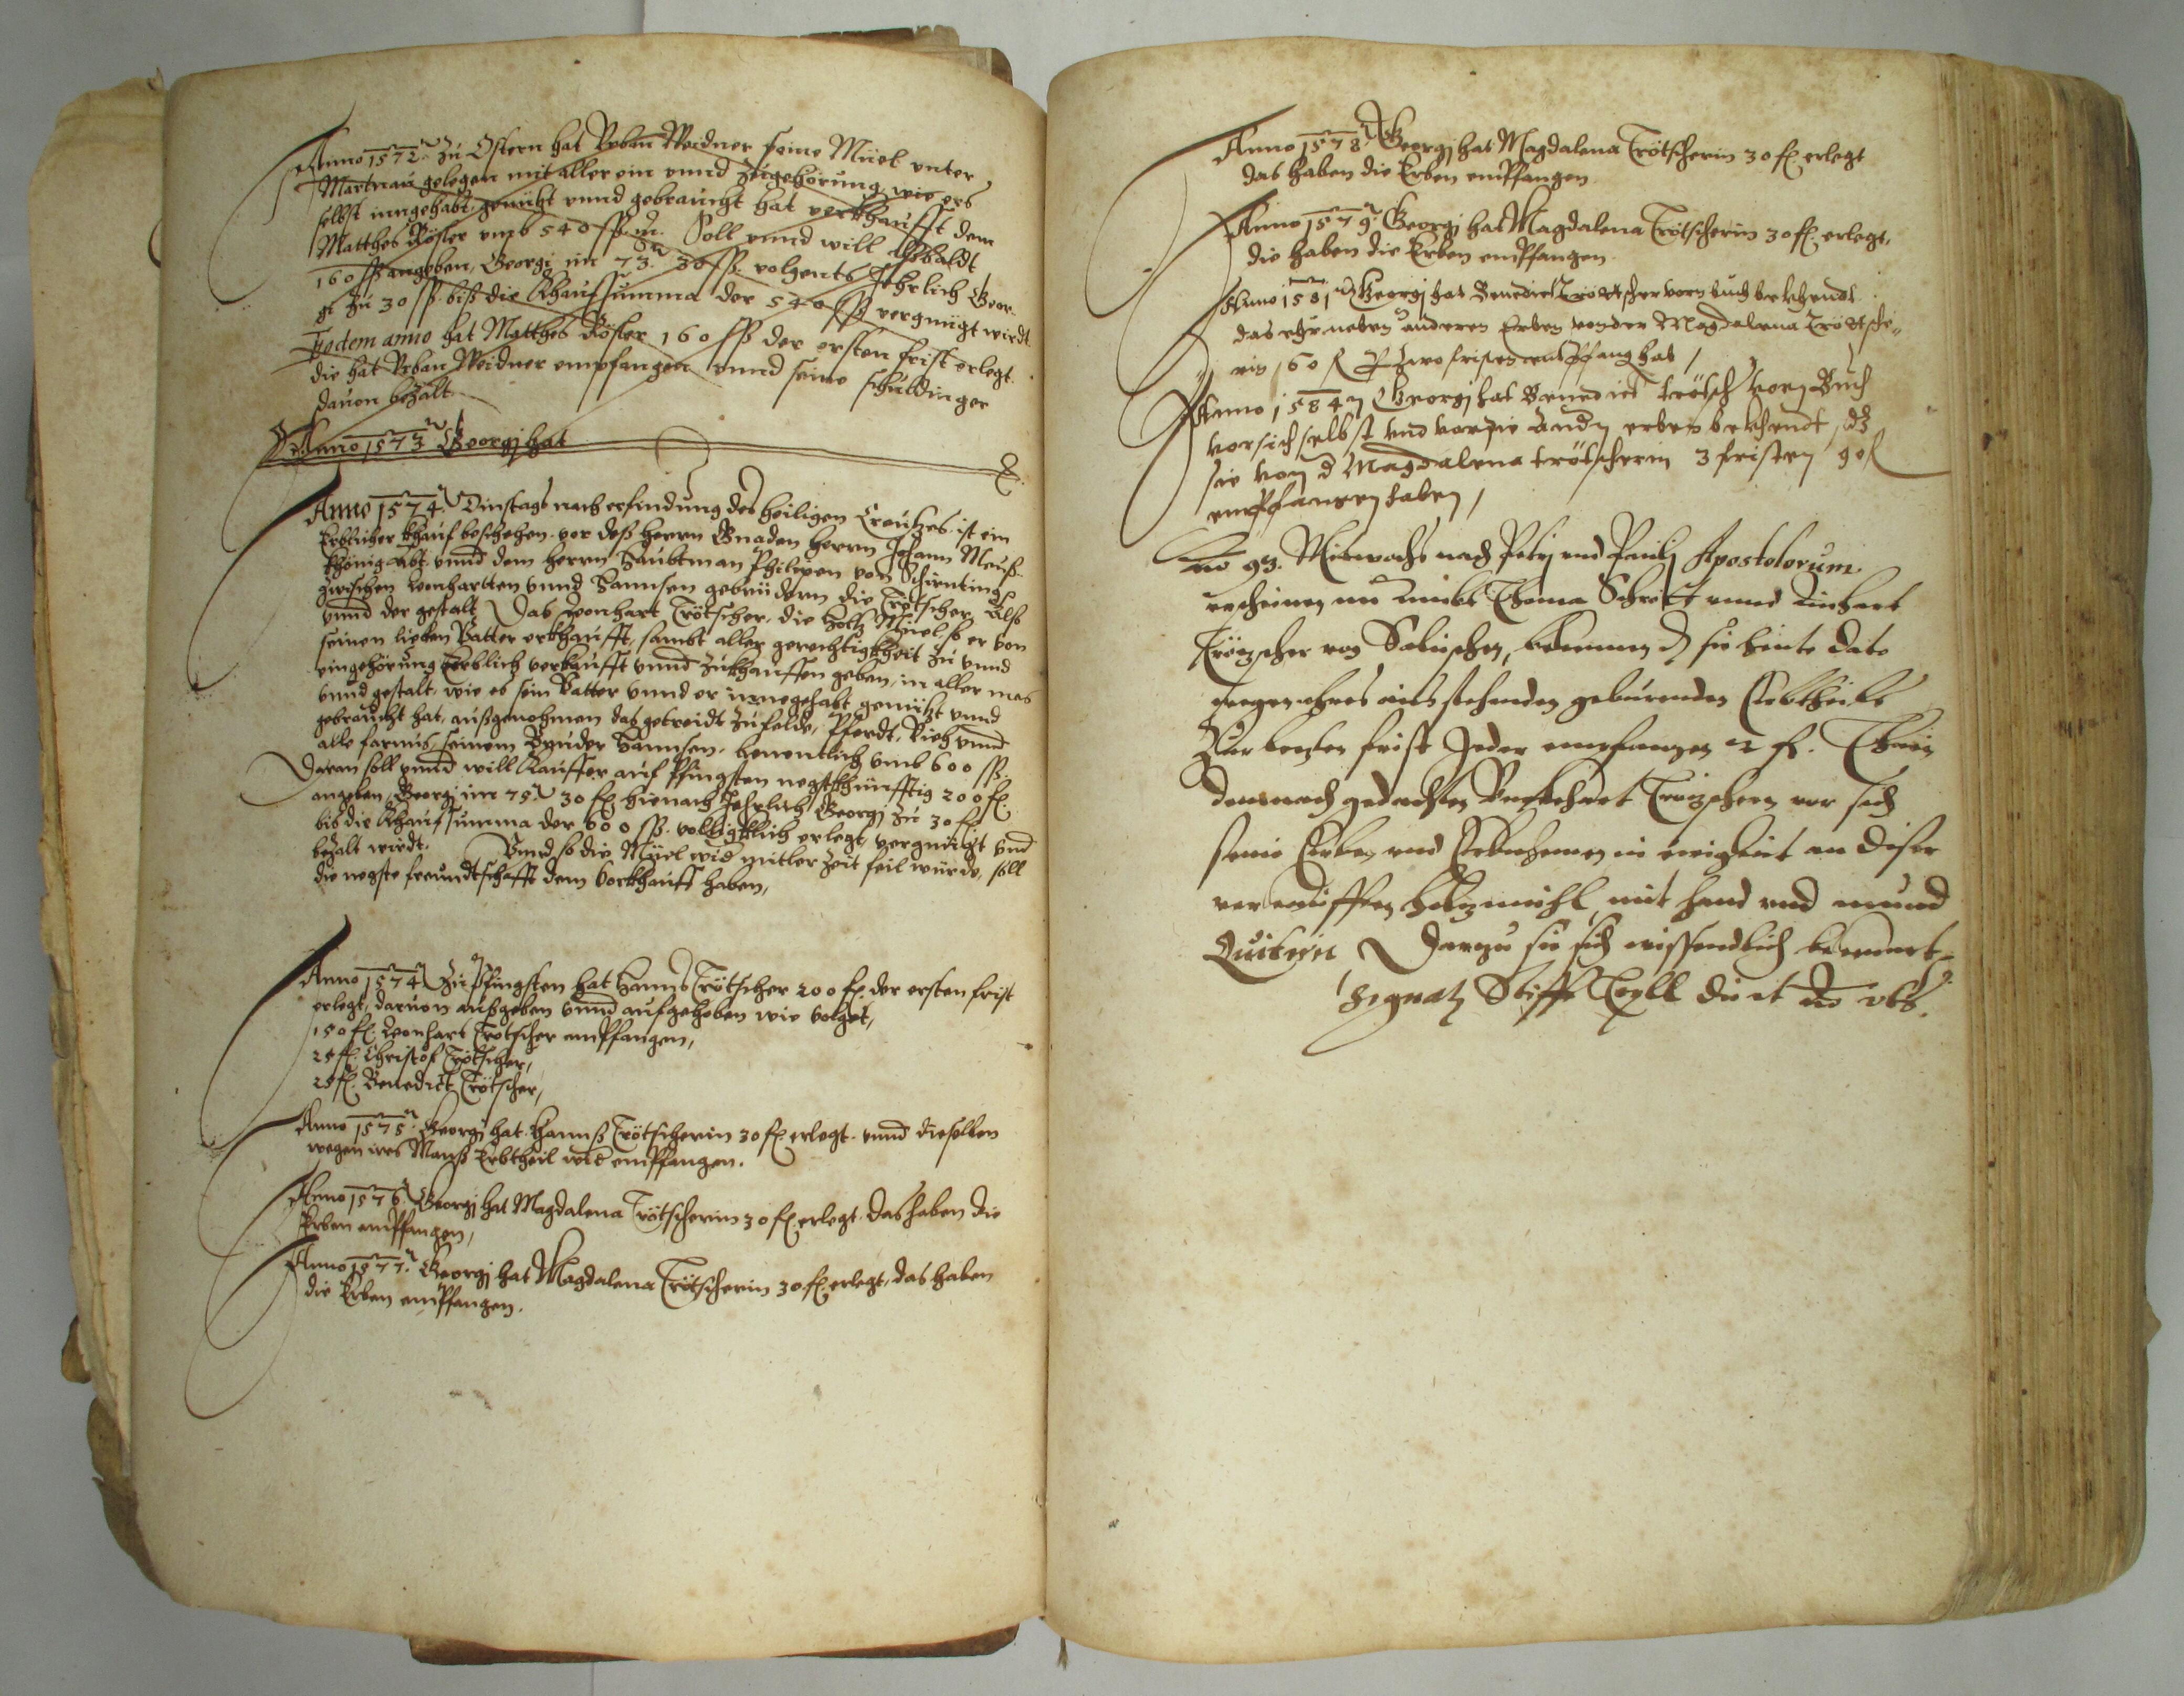 Anno 1572. Zu Ostern hat Urban Weidner seine Müel unter
Martnau gelegen mit aller ein unnd Zugehörung wie ers
selbst inngehabt, genützt unnd gebraucht hat verkhaufft dem
Matthes Rösler umb 540 ß m. Soll unnd will alsbaldt
160 ß angeben, Georgi im 73. 30 ß. volgents Jehrlich Geor-
gi zu 30 ß. biß die Khaufsumma der 540 ß vergnügt wirdt.
Eodem anno hat Matthes Rösler 160 ß der ersten frist erlegt.
die hat Urban Weidner empfangen unnd seine schuldinger
dauon bezalt.
Anno 1573 Georgj hat
Anno 1574. Dinstags nach erfindung des heiligen Creutzes ist ein
Erblicher khauf beschehen vor deß herrn Gnaden herrn Johann Meuß-
khönig Abt unnd dem herrn Haubtman Philipen von Schirnting
zwischen Leonhartten unnd Hannsen gebrüdern die Trötscher, Als
unnd der gestalt, Das Leonhart Trötscher, die Holtz Müel, so er von
seinen lieben Vatter erkhaufft, sambt aller gerechtigkheit zu unnd
eingehörung Erblich verkhaufft unnd zukhauffen geben, in aller mas
unnd gestalt, wie es sein Vatter unnd er innegehabt genützt unnd
gebraucht hat, außgenohmen das getreidt zu felde, Pferdt, Vieh unnd
alle farnus, seinem Bruder Hannsen, benentlich umb 600 ß.
Daran soll unnd will Kauffer auf Pfingsten negstkhünfftig 200 fl.
angeben, Georgi im 75. 30 fl. hienach Jehrlich Georgj zu 30 fl.
bis die Khaufsumma der 600 ß. völligklich erlegt, vergnüegt und
bezalt wirdt. Unnd so die Müel wid mitler zeit feil würde, soll
die negste freundtschafft dem vorkhauff haben,
Anno 1574 Zu Pfingsten hat Hanns Trötscher 200 fl. der ersten frist
erlegt, daruon außgeben unnd aufgehoben wie volget,
150 fl. Leonhart Trötscher empfangen,
25 fl. Christof Trötscher,
25 fl. Benedict Trötscher,
Anno 1575. Georgj hat Hannß Trötscherin 30 fl. erlegt. unnd dieselben
wegen ires Manß Erbtheil wid empfangen.
Anno 1576 Georgj hat Magdalena Trötscherin 30 fl. erlegt. das haben die
Erben empfangen,
Anno 1577. Georgj hat Magdalena Trötscherin 30 fl. erlegt, das haben
die Erben empfangen.
Anno 1578. Georgj hat Magdalena Trötscherin 30 fl. erlegt
das haben die Erben empfangen
Anno 1579. Georgj hat Magdalena Trötscherin 30 fl. erlegt,
die haben die Erben empfangen
Anno 1581 Georgj hat Benedict Trödtscher vorn buch bekhendt
das ehr neben anderen Erben von der Magdalena Trödtsche-
rin 60 fl zwo fristen entpfang hab /
Anno 1584 Georgj hat Benedict trötsch vom Buch
vor sich selbst und vor die Andn erben bekhendt, dz
sie von d Magdalena trötscherin 3 fristen 90 fl
empfangen haben /
93. Mitwochs nach Petrj und Paulj Apostolorum
erscheinen Thoma und Linhart
Trötzscher von, bekennen dz sie heute dato
wegen ihres ausstehenden geburenden Erbtheils
Zur frist Jeder empfangen 2 fl. Thuen
demnach gedachten Trötzschern vor sich
seine Erben und Erbnehmen in ewigkeit an diser
verkaufften holzmühl mit hand und mund
Quitiren Darzu sie sich wissendlich bekennet.
Signatum Stifft die et Ao uts.